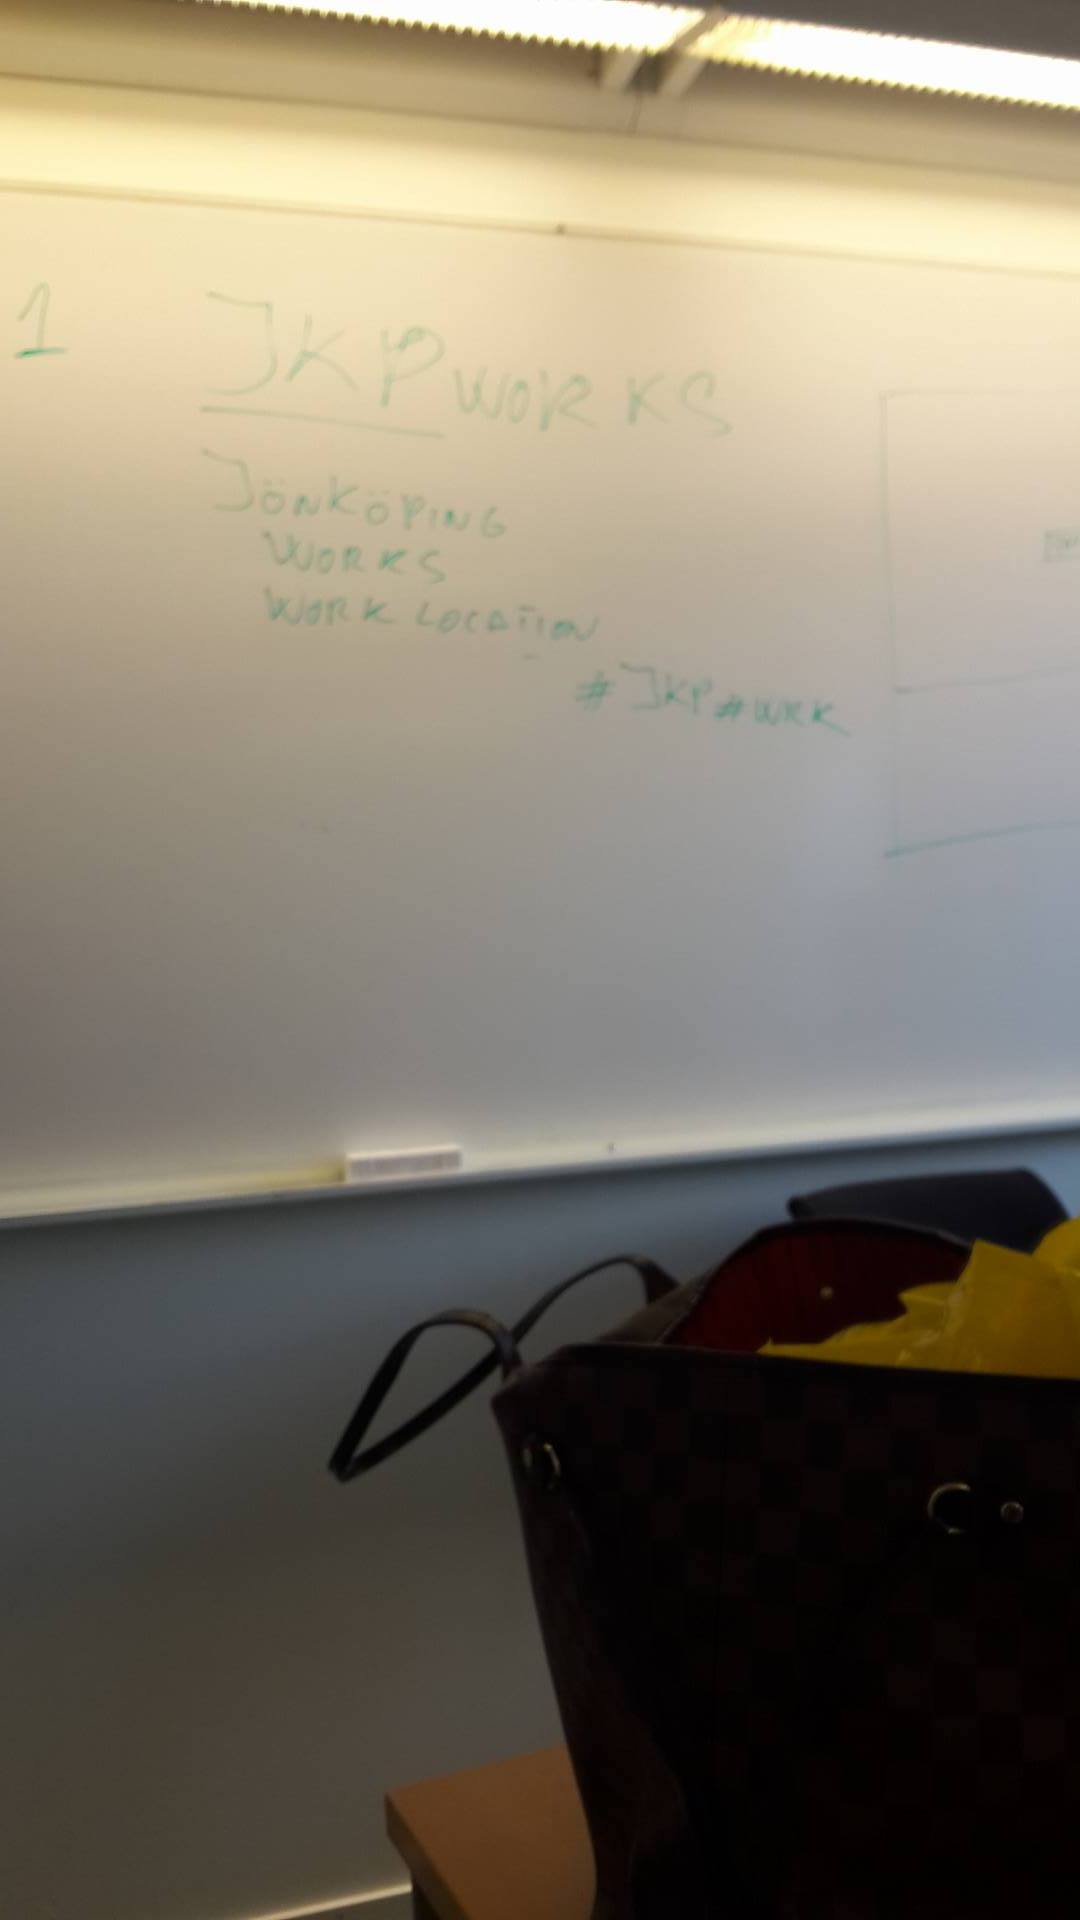 1
JKP WORKS
JÖNKÖPING
WORKS
WORK LOCATION
#JKP #WRK